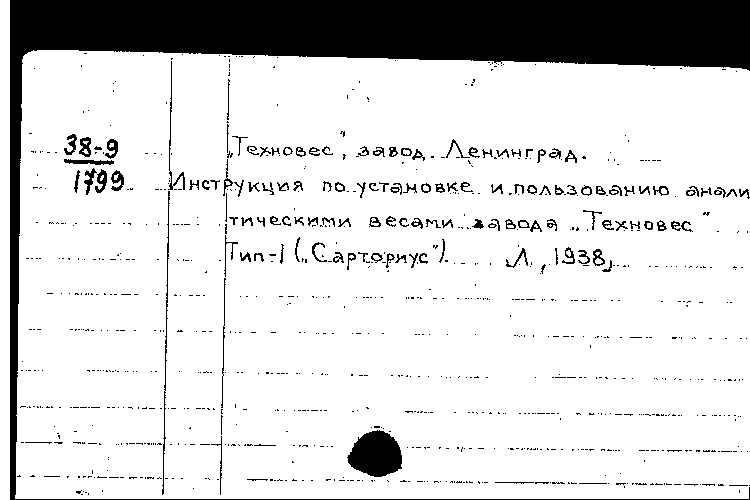 38-9
1799
„Техновес", завод. Ленинград.
Инструкция по установке и пользованию анали
тическими весами завода „Техновес"
Тип-1 („Сарториус"). Л, 1938,